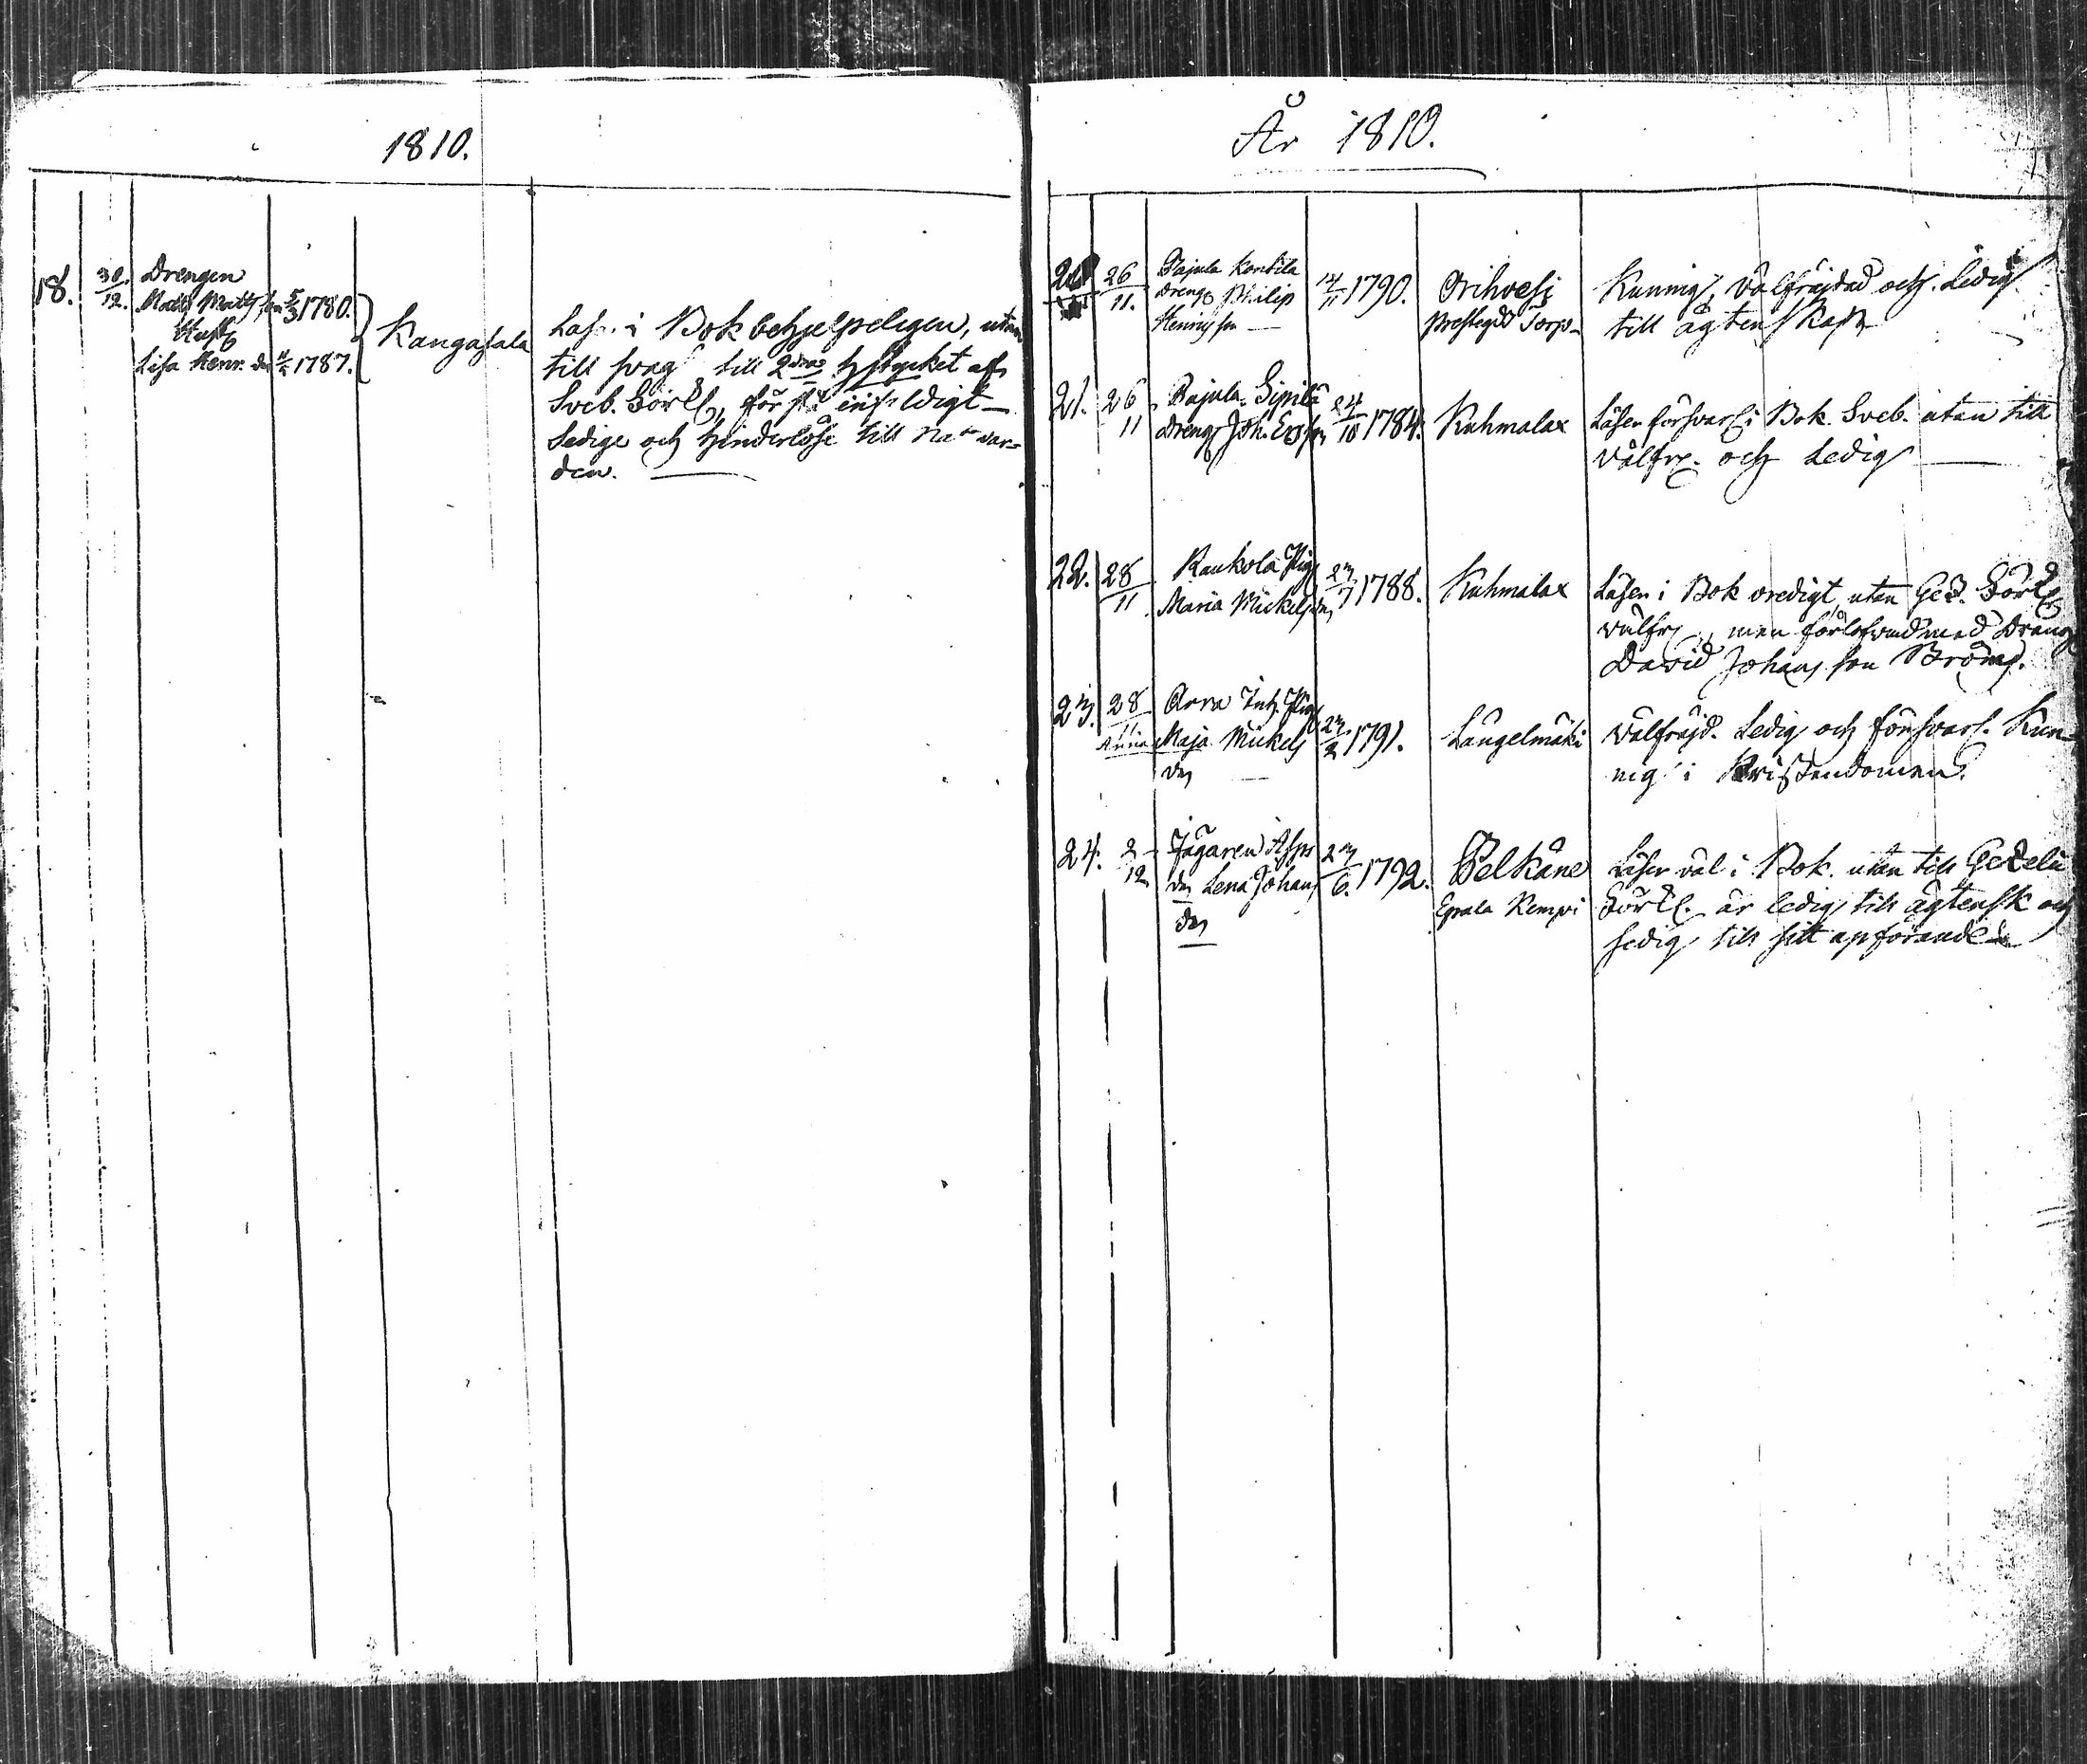 1810.
18. 30/12. Drengen
Matts Matts son 5/3 1780.
Hust
Lisa Henr. dr 4/2 1787.
Kangasala
Läs. i Bok behjelpeligen, utan
till svag till 2dra Hstycket af
Sveb. Förkl, förstå enfaldigt
Sedige och hinderlöse till Nattvar-
den.
År 1810.
26/11. Pajula Konkila
Dreng Philip
Henrics son
14/11 1790.
Orihvesi
Prestegds Torp
Kunnig, välfräjdad och Ledig
till ägtenskap
21. 26/11 Pajula Sipilä
Dreng Joh. Ers son 24/10 1784.
Kuhmalax
Läser försvarl i Bok. Sveb. utan till
välfr. och Ledig
22. 28/11 Raukola Pig
Maria Mickels dr 23/7 1788.
Kuhmalax
Läser i Bok oredigt utan Gez. Förkl
välfr, men förlofvad med Dreng
David Johans son Bröms.
23. 28/11 Arra Inh. Pig
Anna Maja Mickels
dr
23/2 1791.
Längelmäki
välfräjd. Ledig och försvarl. Kun-
nig i Kristendomen.
24. 2/12 Jägaren Asps
dr Lena Johans
dr
23/6. 1792.
Pelkäne
Epala Kempi
Läser väl i Bok. utan till Gezelii
Förkl. är ledig till ägtensk och
sedig till sitt upförande